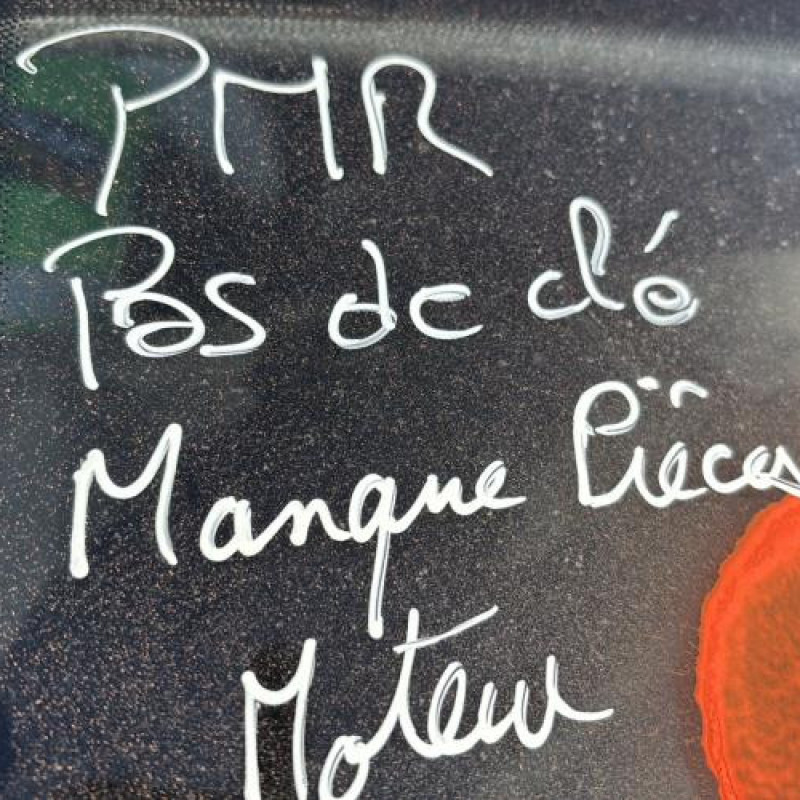 PMR
Pas de clé
Manque Pièces
Moteur